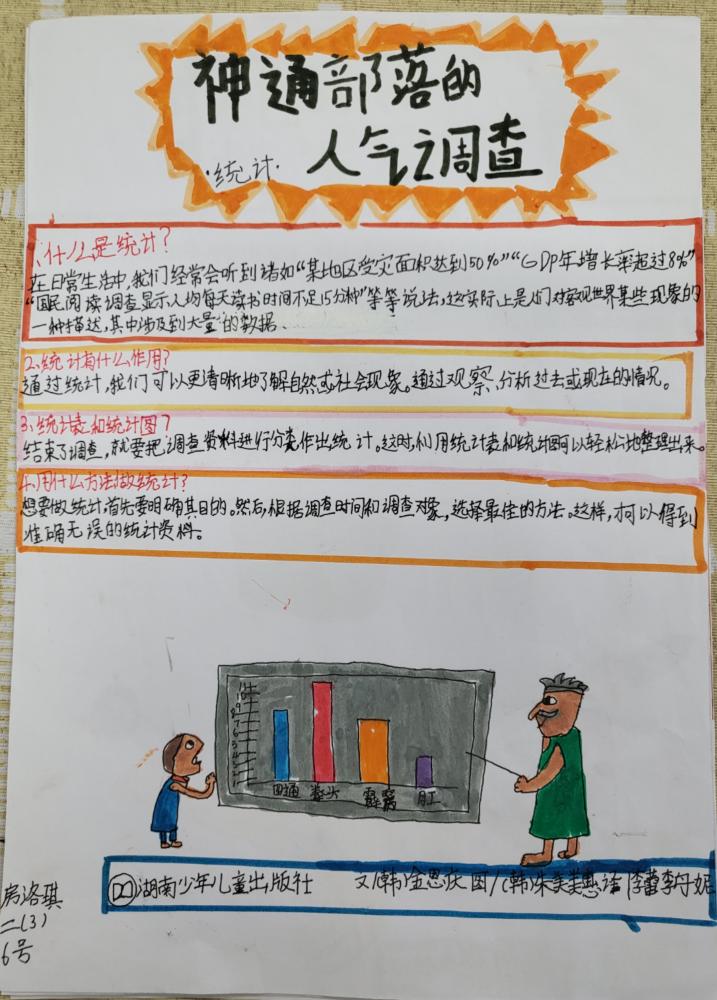 神通部落的
·统计·
人气之调查
1、什么是统计?
在日常生活中,我们经常会听到诸如“某地区受灾面积达到50%”“GDP年增长率超过8%”
“国民阅读调查显示人均每天读书时间不足15分钟”等等说法,这实际上是人们对客观世界某些现象的
一种描述,其中涉及到大量的数据.
2、统计有什么作用?
通过统计,我们可以更清晰地了解自然或社会现象。通过观察、分析过去或现在的情况。
3、统计表和统计图?
结束了调查,就要把调查资料进行分类作出统计。这时,利用统计表和统计图可以轻松地整理出来。
4.用什么方法做统计?
想要做统计,首先要明确其目的。然后,根据调查时间和调查对象,选择最佳的方法。这样,才可以得到
准确无误的统计资料。
11
10
9
8
7
6
5
4
3
2
1
拳头
霹雳
湖南少年儿童出版社 文/(韩)金恩庆 图/(韩)朱美美惠 译
房洛琪
二(3)
6号